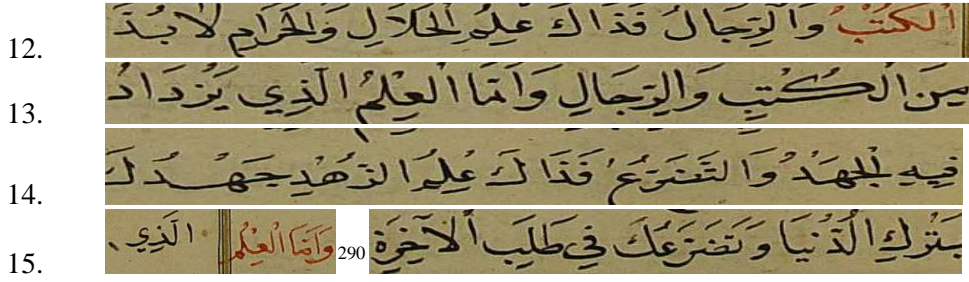 12. الْكُتُبُ وَالرِّجَالُ فَذَاكَ عِلْمُ الْحَلَالِ وَالْحَرَامِ لَابُدَّ
13. مِنَ الْكُتُبِ وَالرِّجَالِ وَاَمَّا الْعِلْمُ الَّذِي يَزْدَادُ
14. فِيهِ الْجَهْدُ وَالتَّضَرُّعُ فَذَاكَ عِلْمُ الزُّهْدِ جَهْدُكَ
15. بِتَرْكِ الدُّنْيَا وَتَضَرُّعُكَ فِي طَلَبِ الْآخِرَةِ 290 وَاَمَّا الْعِلْمُ الَّذِي